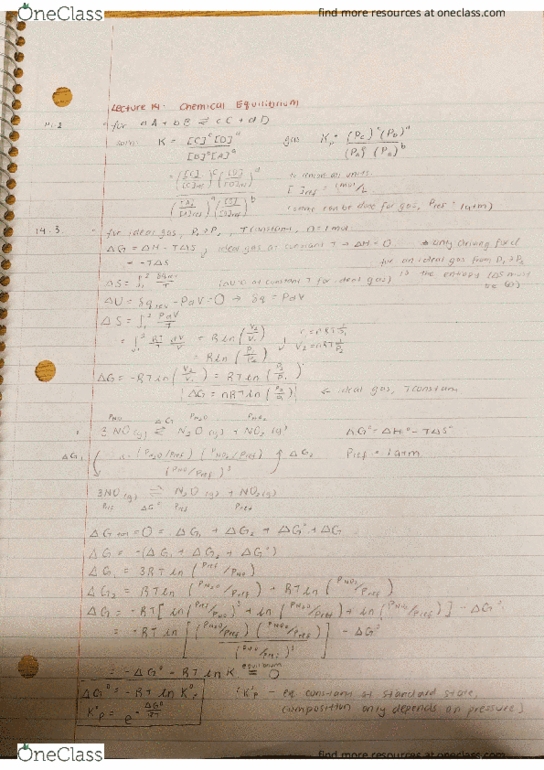 OneClass
find more resources at oneclass.com
Lecture 14: Chemical Equilibrium
14.2 · for aA + bB ⇌ cC + dD
K = [C]^c[D]^d / [B]^b[A]^a gas Kp = (Pc)^c (PD)^d / (Pa)^a (PB)^b
[ ]ref = 1 mol/L
(same can be done for gas, Pref = 1 atm)
14.3 · for ideal gas, P1 → P2, T constant, n = 1 mol
ΔG = ΔH - TΔS, ideal gas at constant T → ΔH = 0. * only driving force
= -TΔS for an ideal gas from P1 → P2
is the entropy
ΔU = 0 at constant T for ideal gas
ΔU = δqrev - PdV = 0 → δq = PdV
ΔS = ∫1^2 PdV/T
= ∫1^2 RT/T dV/V = R ln(V2/V1)
R ln(P1/P2)
ΔG = -RT ln(V2/V1) = RT ln(P2/P1)
ΔG = nRT ln(P2/P1) ← ideal gas, T constant
PNO ΔG PN2O PNO2
3NO(g) ⇌ N2O(g) + NO2(g) ΔG° = ΔH° - TΔS°
ΔG1 (PN2O/Pref)(PNO2/Pref) / (PNO/Pref)^3 ΔG2 Pref = 1 atm
3NO(g) ⇌ N2O(g) + NO2(g)
Pref ΔG° Pref Pref
= 0 = ΔG1 + ΔG2 + ΔG° + ΔG
ΔG = -(ΔG1 + ΔG2 + ΔG°)
ΔG1 = 3RT ln(Pref/PNO)
ΔG2 = RT ln(PN2O/Pref) + RT ln(PNO2/Pref)
ΔG = -RT[ln(Pref/PNO)^3 + ln(PN2O/Pref) + ln(PNO2/Pref)] - ΔG°
= -RT ln[(PN2O/Pref)(PNO2/Pref) / (PNO/Pref)^3] - ΔG°
= -ΔG° - RT ln K equilibrium = 0
ΔG° = -RT ln K°p [K°p - eq constant at standard state,
K°p = e^-ΔG°/RT composition only depends on pressure]
OneClass
find more resources at oneclass.com